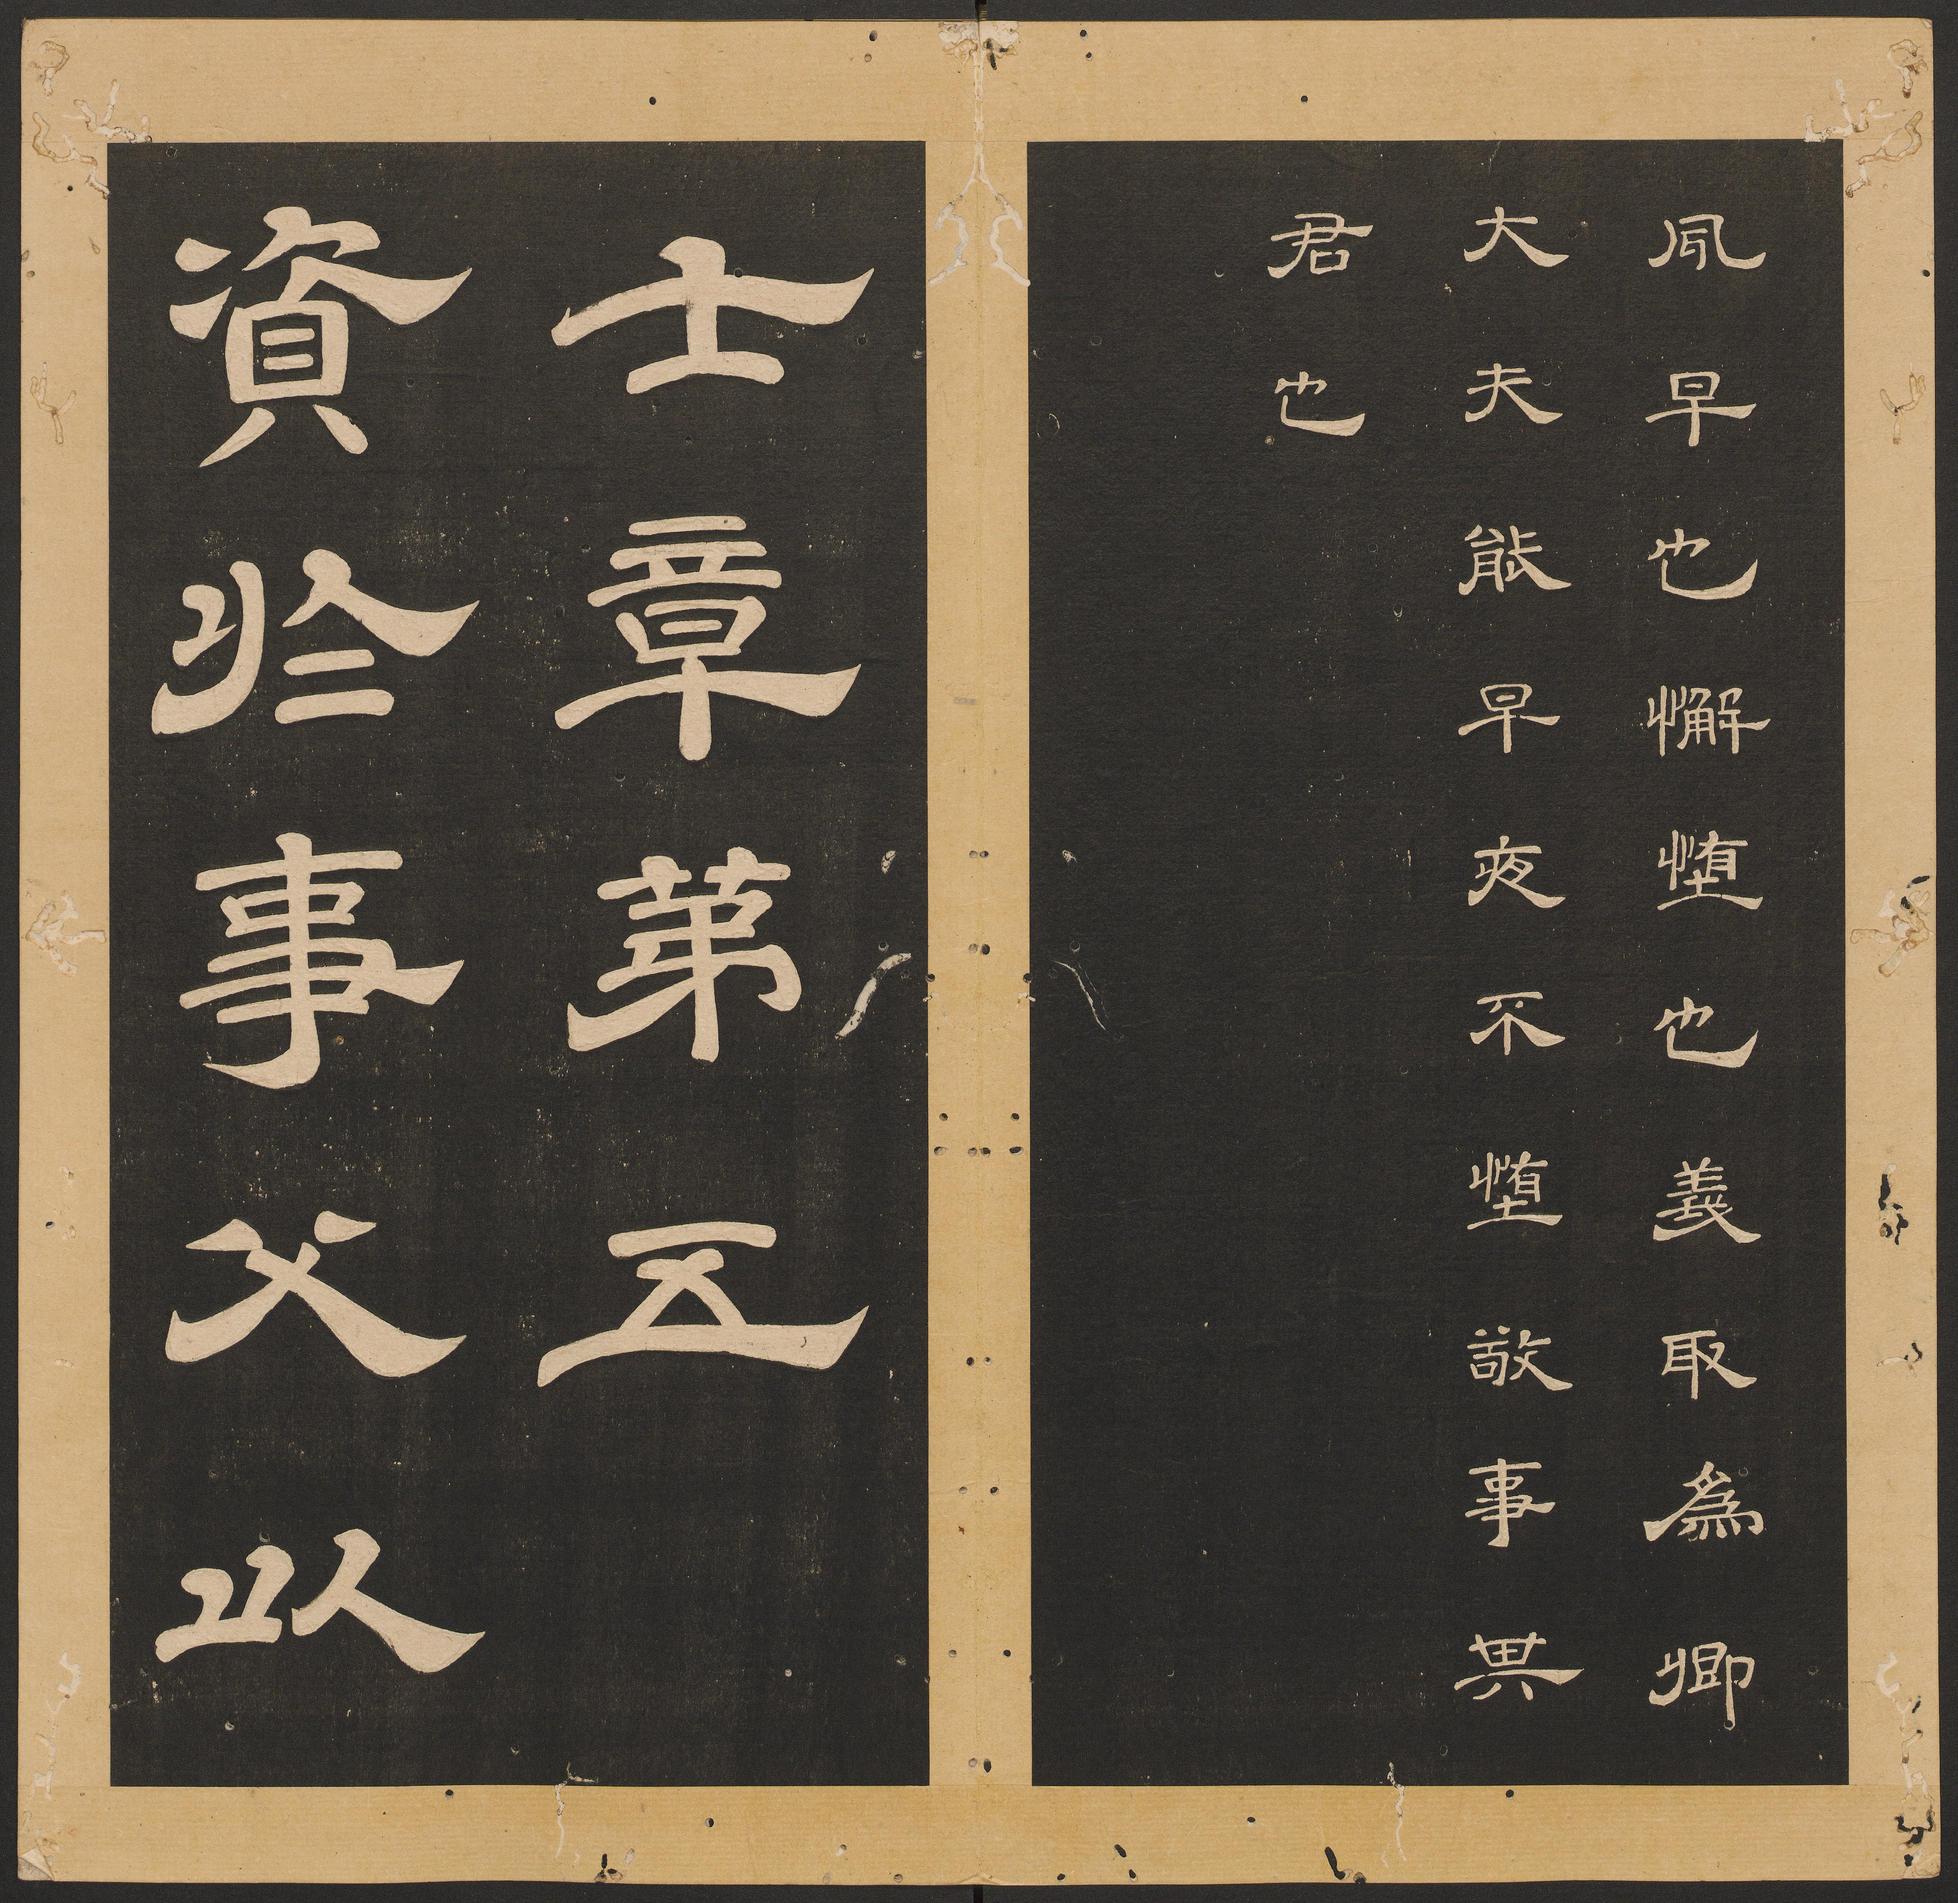 夙早也懈惰也義取為卿
大夫能早夜不惰敬事其
君也
士章第五
資於事父以